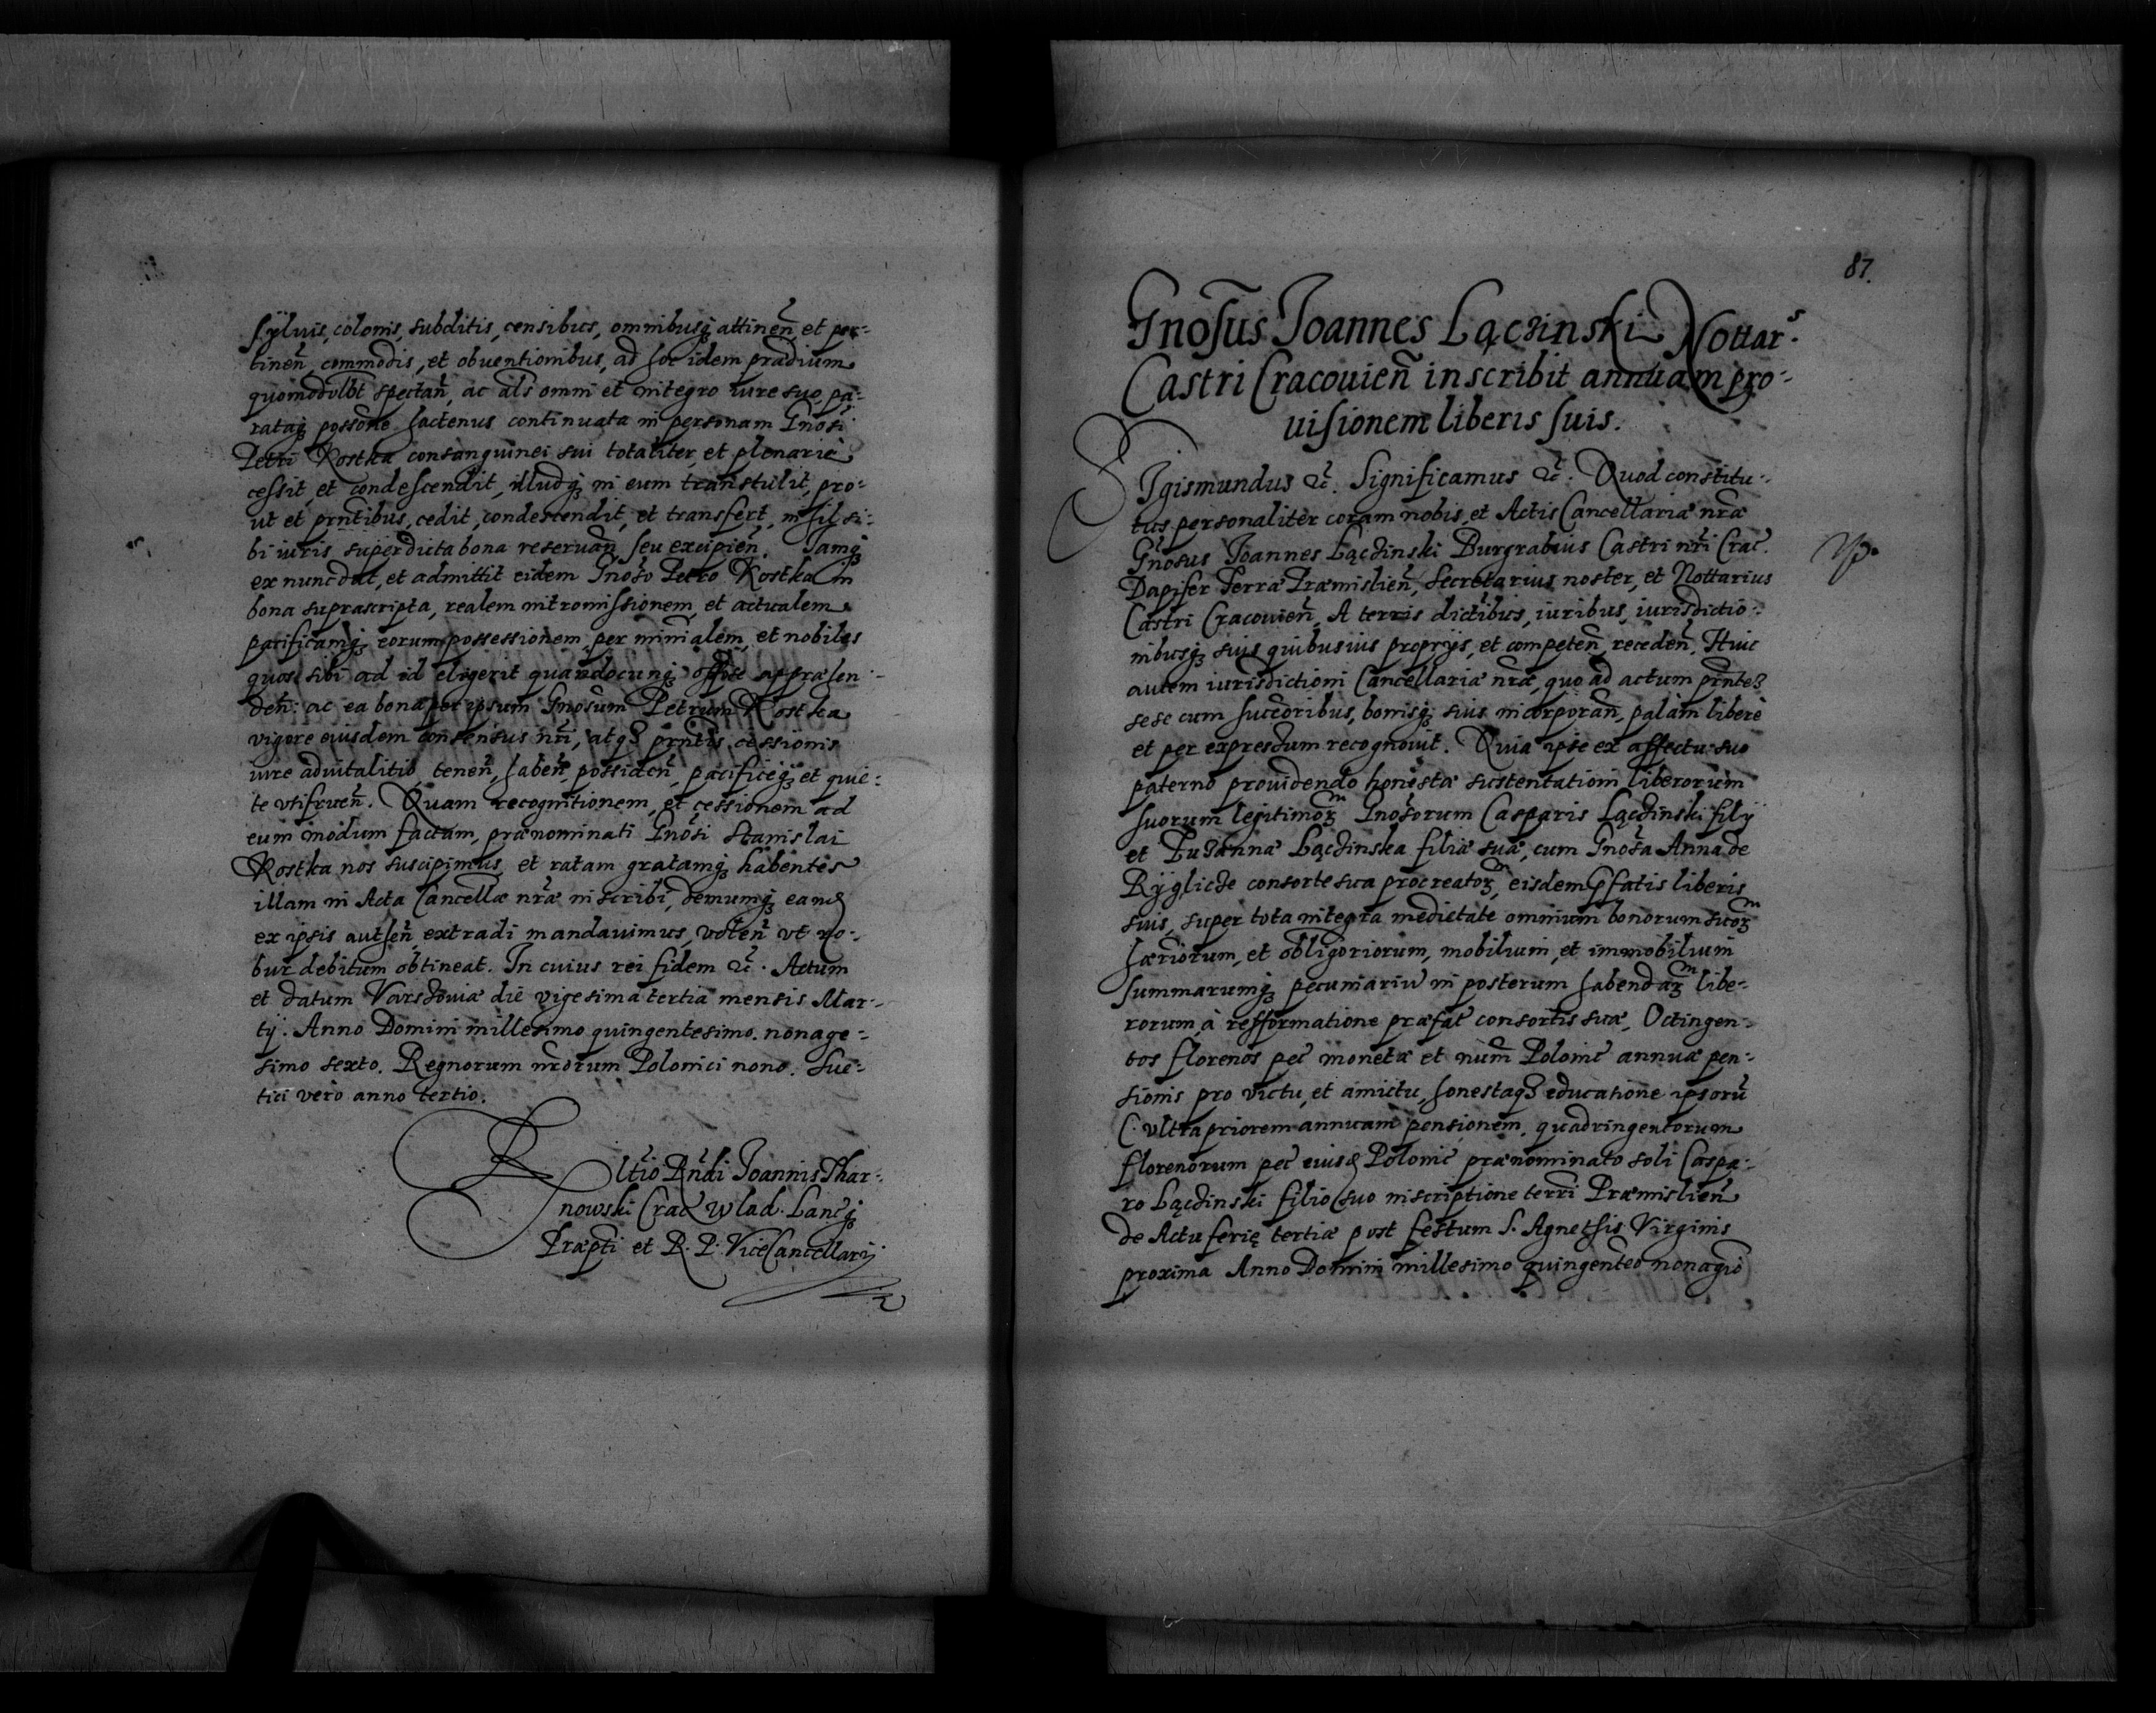 sÿluis, colonis, subditis, censibus, omnibusq attineñ, et per-
tineñ, commodis, et obuentionibus, ad hoc idem prædium
quomodolbt spectañ, ac als omni et integro iure suo, pa-
rataq possõne hactenus continuata in personam Gnõsi
Petri Kostka consanguinei sui totaliter, et plenarie
cessit et condescendit, illudq in eum transtulit, pro-
ut et prñtibus, cedit, condescendit, et transfert, nihil si-
bi iuris super dicta bona reseruañ, seu excipieñ. Iamq
ex nunc dat, et admittit eidem Gnoso Petro Kostka in
bona suprascripta, realem intromissionem, et actualem
pacificamq eorum possessionem per minialem, et nobiles
quos sibi ad id eligerit quandocunq offõse appræhen-
deñ: ac ea bona per ipsum Gnosum Petrum Kostka
vigore eiusdem consensus nři, atq prñtis cessionis
iure aduitalitio, teneñ, habeñ, possideñ, pacificeq et quie-
te vtifrueñ. Quam recognitionem, et cessionem ad
eum modum factam, prænominati Gnõsi Stanislai
Kostka nos suscipimus, et ratam gratamq habentes
illam in Acta Cancellæ nræ inscribi, demumq eand
ex ipsis autheñ extradi mandauimus, voleñ vt ro-
bur debitum obtineat. In cuius rei fidem &c. Actum
et datum Varschouiæ die vigesima tertia mensis Mar-
tÿ. Anno Domini millesimo quingentesimo. nonage-
simo sexto. Regnorum nrorum Polonici nono. Sue-
tici vero anno tertio.
Rltio Rndi Ioannis Thar-
nowski Crac Wlad. Lancq
Præpti et R. P. ViceCancellarÿ
87.
Gnosus Ioannes Łączinski Nottar⁹
Castri Cracouieñ inscribit annuam pro-
uisionem liberis suis.
SIgismundus &c. Significamus &c. Quod constitu-
tus personaliter coram nobis, et Actis Cancellariæ nræ
Gnosus Ioannes Łączinski Burgrabius Castri nři Crac.
Dapifer Terræ Præmislieñ, Secretarius noster, et Nottarius
Castri Cracouieñ, A terris dictibus, iuribus, iurisdictio-
nibusq suis quibusuis proprÿs, et competeñ, recedeñ, Huic
autem iurisdictioni Cancellariæ nræ, quo ad actum prñtem
sese cum succoribus, bonisq suis incorporañ, palam libere
et per expressum recognouit. Quia ipse ex affectu suo
paterno prouidendo honestæ sustentationi liberorum
suorum legitimoꝝ Gnosorum Casparis Łączinski filÿ
et Zuzannæ Łączinska filiæ suæ, cum Gnosa Anna de
Rÿglicze consorte sua procreatoꝝ, eisdem pfatis liberis
suis, super tota integra medietate omnium bonorum suoꝝ
hæriorum, et obligoriorum, mobilium, et immobilium
summarumq pecuniariũ in posterum habendaꝝ libe-
rorum, à refformatione præfat consortis suæ, Octingen-
tos florenos pec monetæ et num Polonic annuæ pen-
sionis pro victu, et amictu, honestaq educatione ipsorũ
(vltra priorem annuam pensionem, quadringentorum
florenorum pec eiusd Polonic prænominato soli Caspa-
ro Łączinski filio suo inscriptione terri Præmislieñ
de Actu ferię tertiæ post festum S. Agnethis Virginis
proxima Anno Domini millesimo quingenteo nonagio